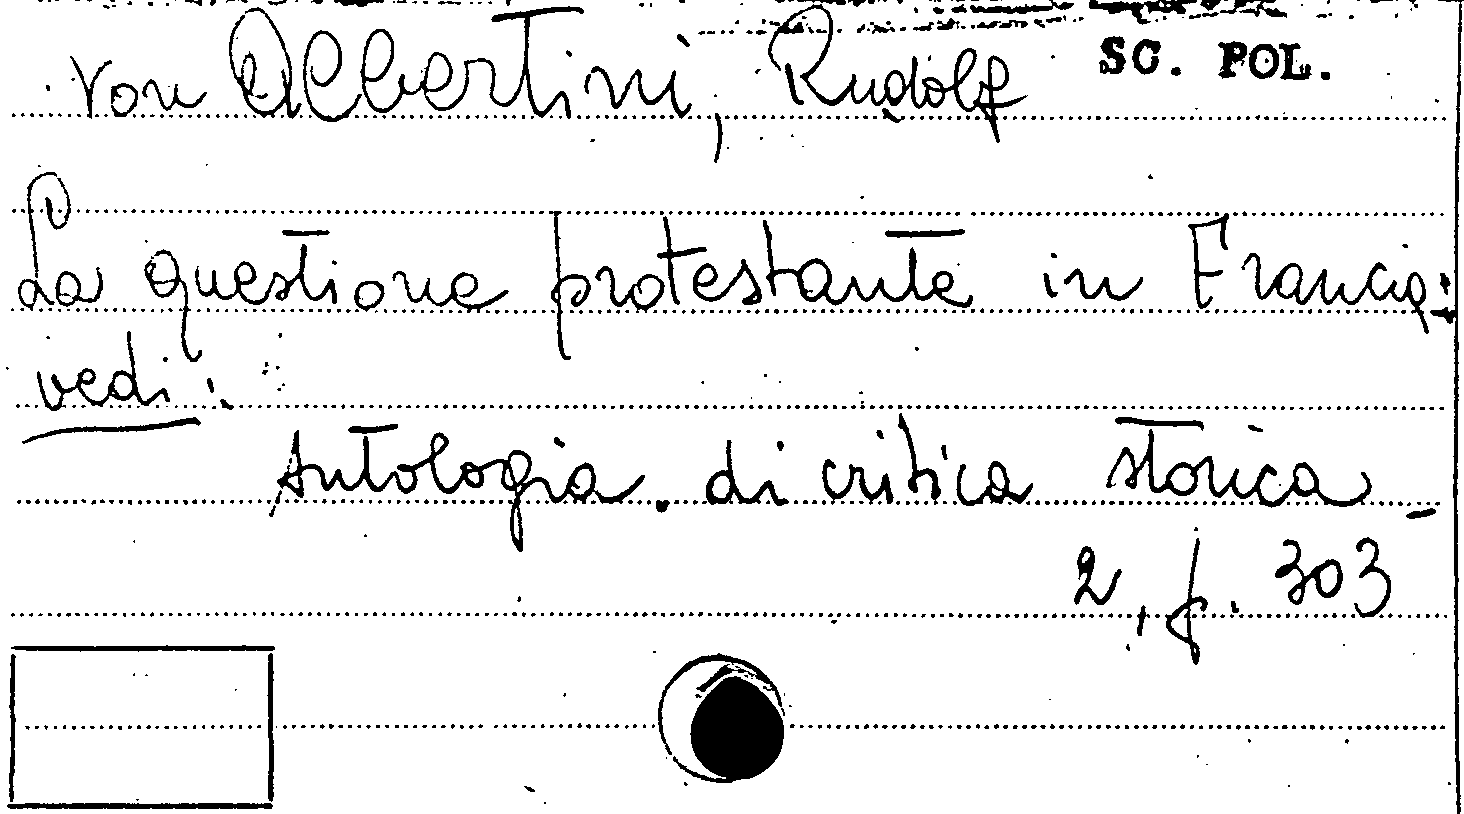 von Albertini, Rudolf
SC. POL.
La questione protestante in Francia:
vedi:
Antologia di critica storica -
2, p. 303